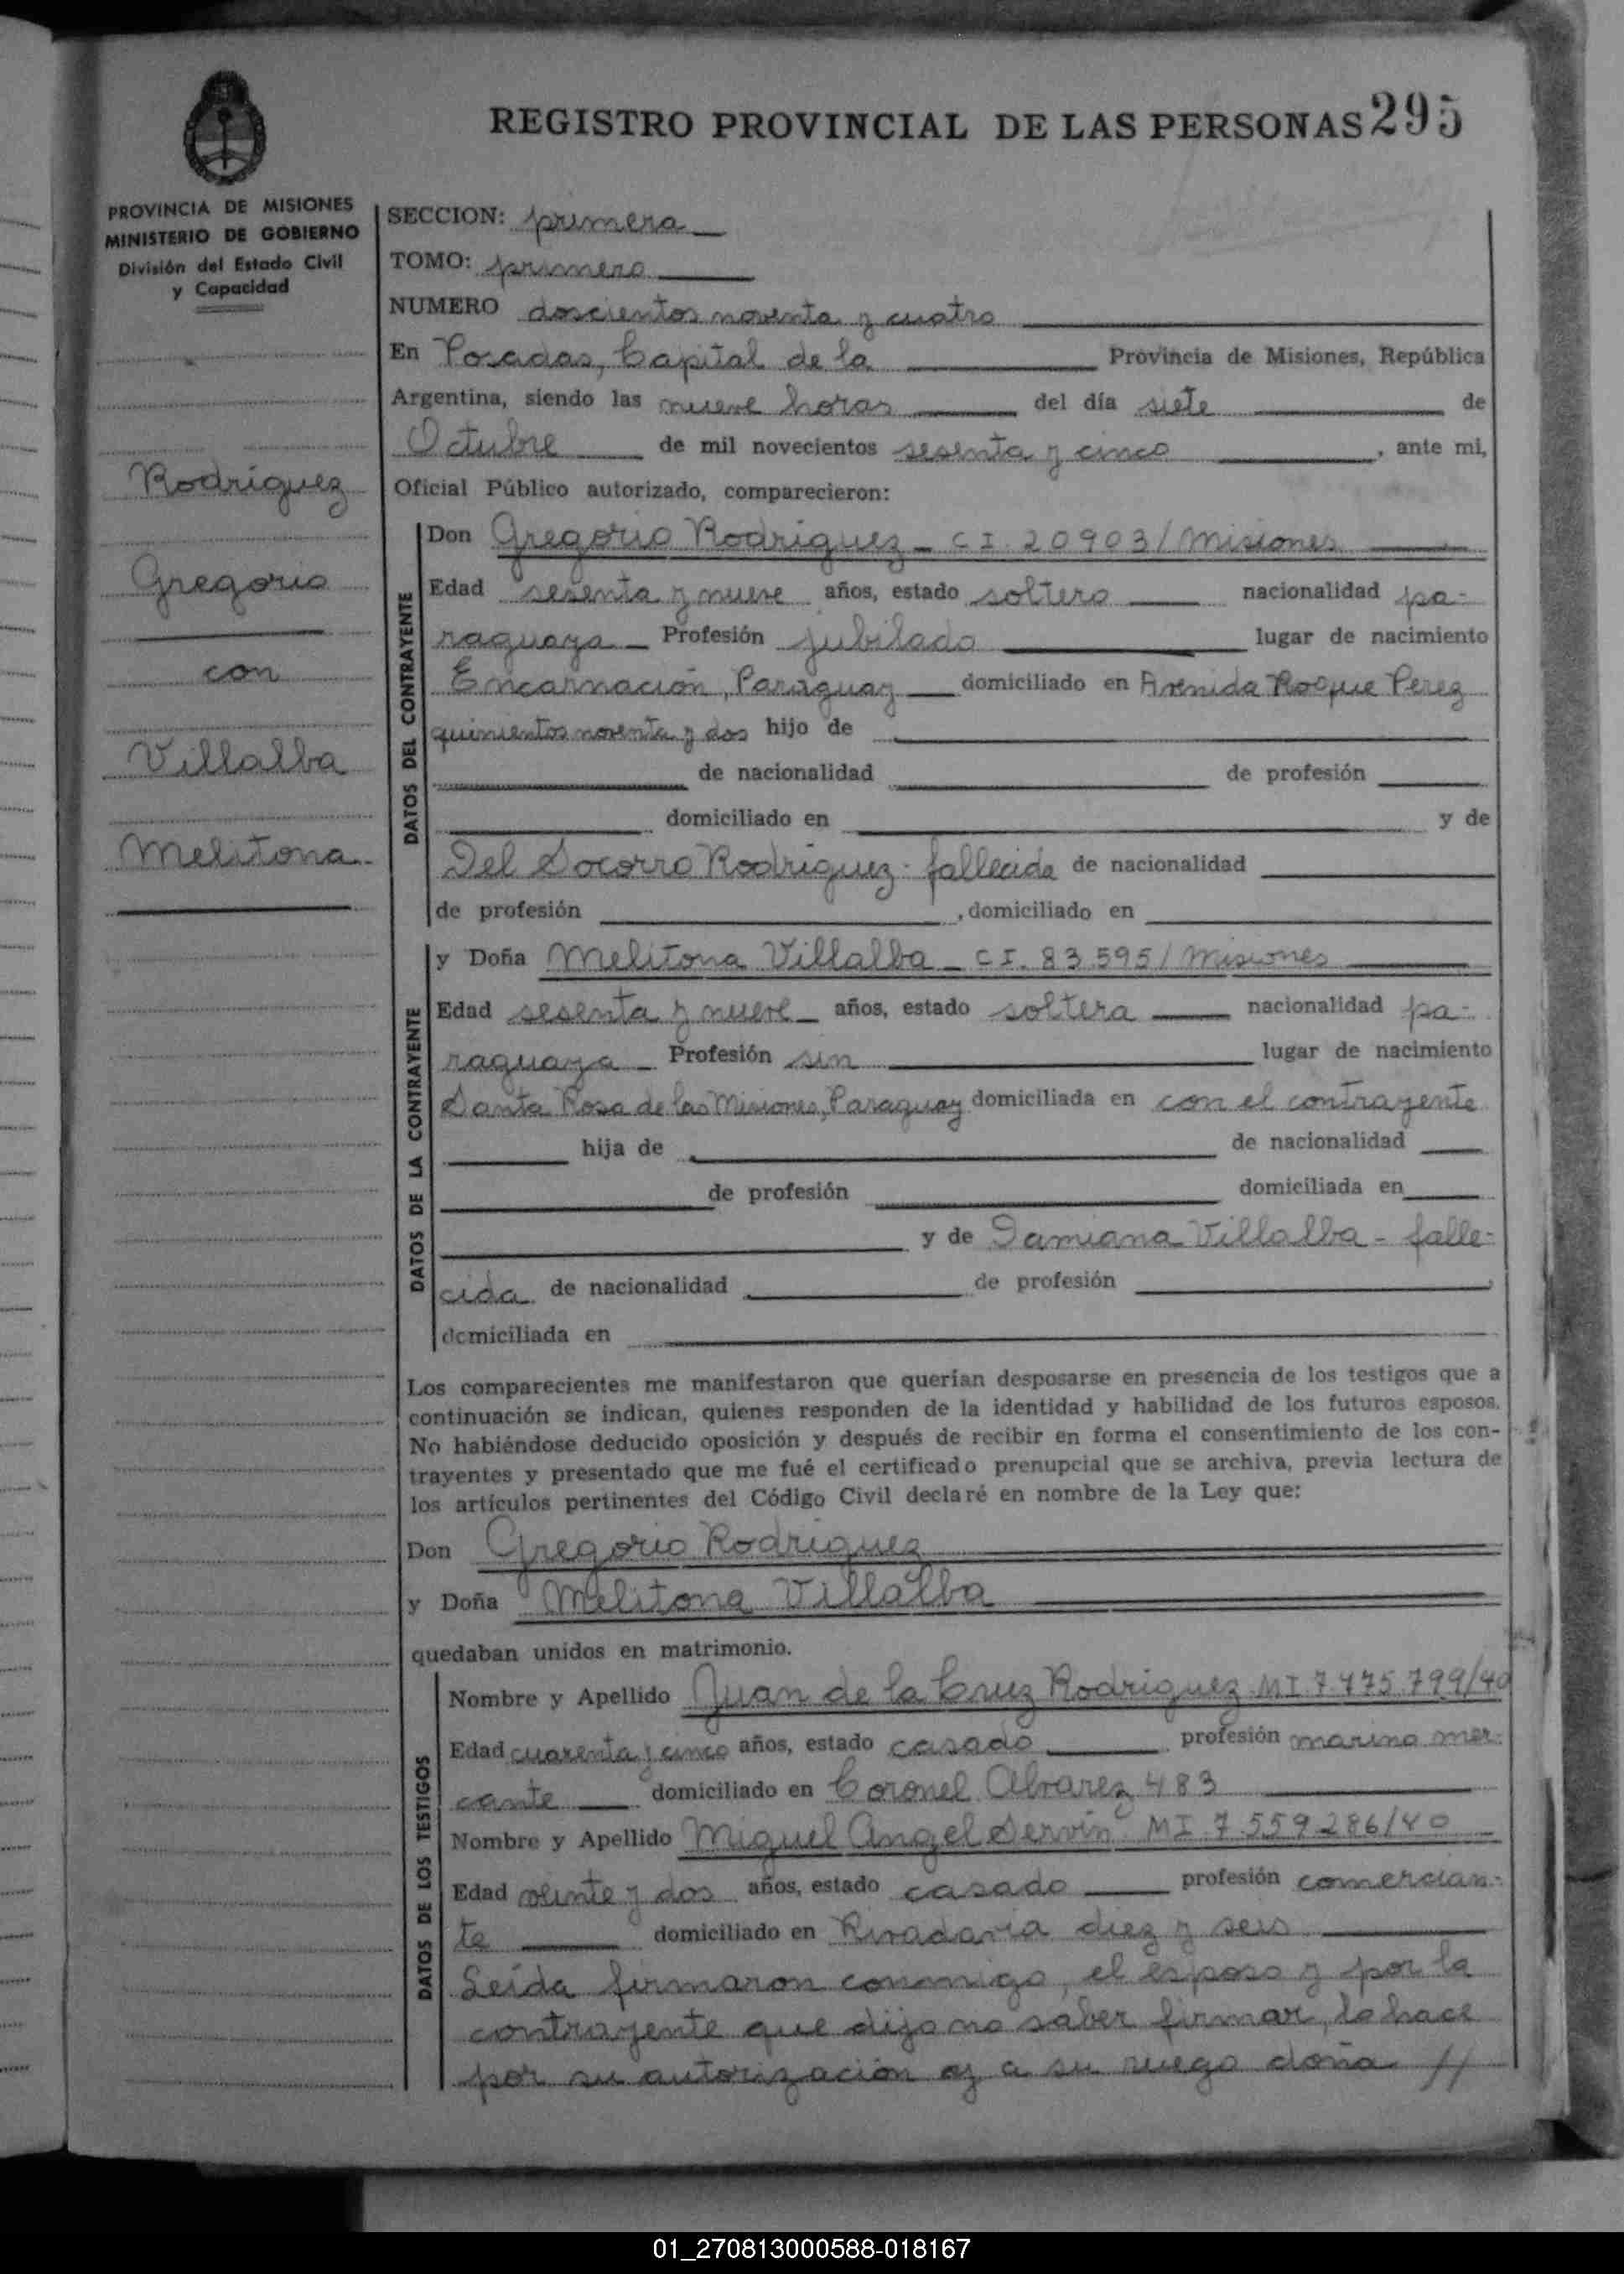 REGISTRO PROVINCIAL DE LAS PERSONAS 295
PROVINCIA DE MISIONES
MINISTERIO DE GOBIERNO
División del Estado Civil
y Capacidad
Rodríguez
Gregorio
con
Villalba
Melitona
SECCION: primera
TOMO: primero
NUMERO doscientos noventa y cuatro
En Posadas, Capital de la Provincia de Misiones, República
Argentina, siendo las nueve horas del día siete de
Octubre de mil novecientos sesenta y cinco, ante mi,
Oficial Público autorizado, comparecieron:
DATOS DEL CONTRAYENTE
Don Gregorio Rodríguez - CI. 20903/Misiones
Edad sesenta y nueve años, estado soltero nacionalidad pa-
raguaya Profesión jubilado lugar de nacimiento
Encarnación, Paraguay domiciliado en Avenida Roque Perez
quinientos noventa y dos hijo de
de nacionalidad de profesión
domiciliado en y de
Del Socorro Rodríguez - fallecida de nacionalidad
de profesión , domiciliado en
DATOS DE LA CONTRAYENTE
y Doña Melitona Villalba - CI. 83.595/Misiones
Edad sesenta y nueve años, estado soltera nacionalidad pa-
raguaya Profesión sin lugar de nacimiento
Santa Rosa de las Misiones, Paraguay domiciliada en con el contrayente
hija de de nacionalidad
de profesión domiciliada en
y de Damiana Villalba - falle-
cida de nacionalidad de profesión
domiciliada en
Los comparecientes me manifestaron que querían desposarse en presencia de los testigos que a
continuación se indican, quienes responden de la identidad y habilidad de los futuros esposos.
No habiéndose deducido oposición y después de recibir en forma el consentimiento de los con-
trayentes y presentado que me fué el certificado prenupcial que se archiva, previa lectura de
los artículos pertinentes del Código Civil declaré en nombre de la Ley que:
Don Gregorio Rodríguez
y Doña Melitona Villalba
quedaban unidos en matrimonio.
DATOS DE LOS TESTIGOS
Nombre y Apellido Juan de la Cruz Rodríguez MI 7.475.799/40
Edad cuarenta y cinco años, estado casado profesión marino mer-
cante domiciliado en Coronel Alvarez 483
Nombre y Apellido Miguel Angel Servín MI. 7.559.286/40
Edad veinte y dos años, estado casado profesión comercian-
te domiciliado en Rivadavia diez y seis
Leída firmaron conmigo, el esposo y por la
contrayente que dijo no saber firmar, lo hace
por su autorización y a su ruego doña //
01_270813000588-018167